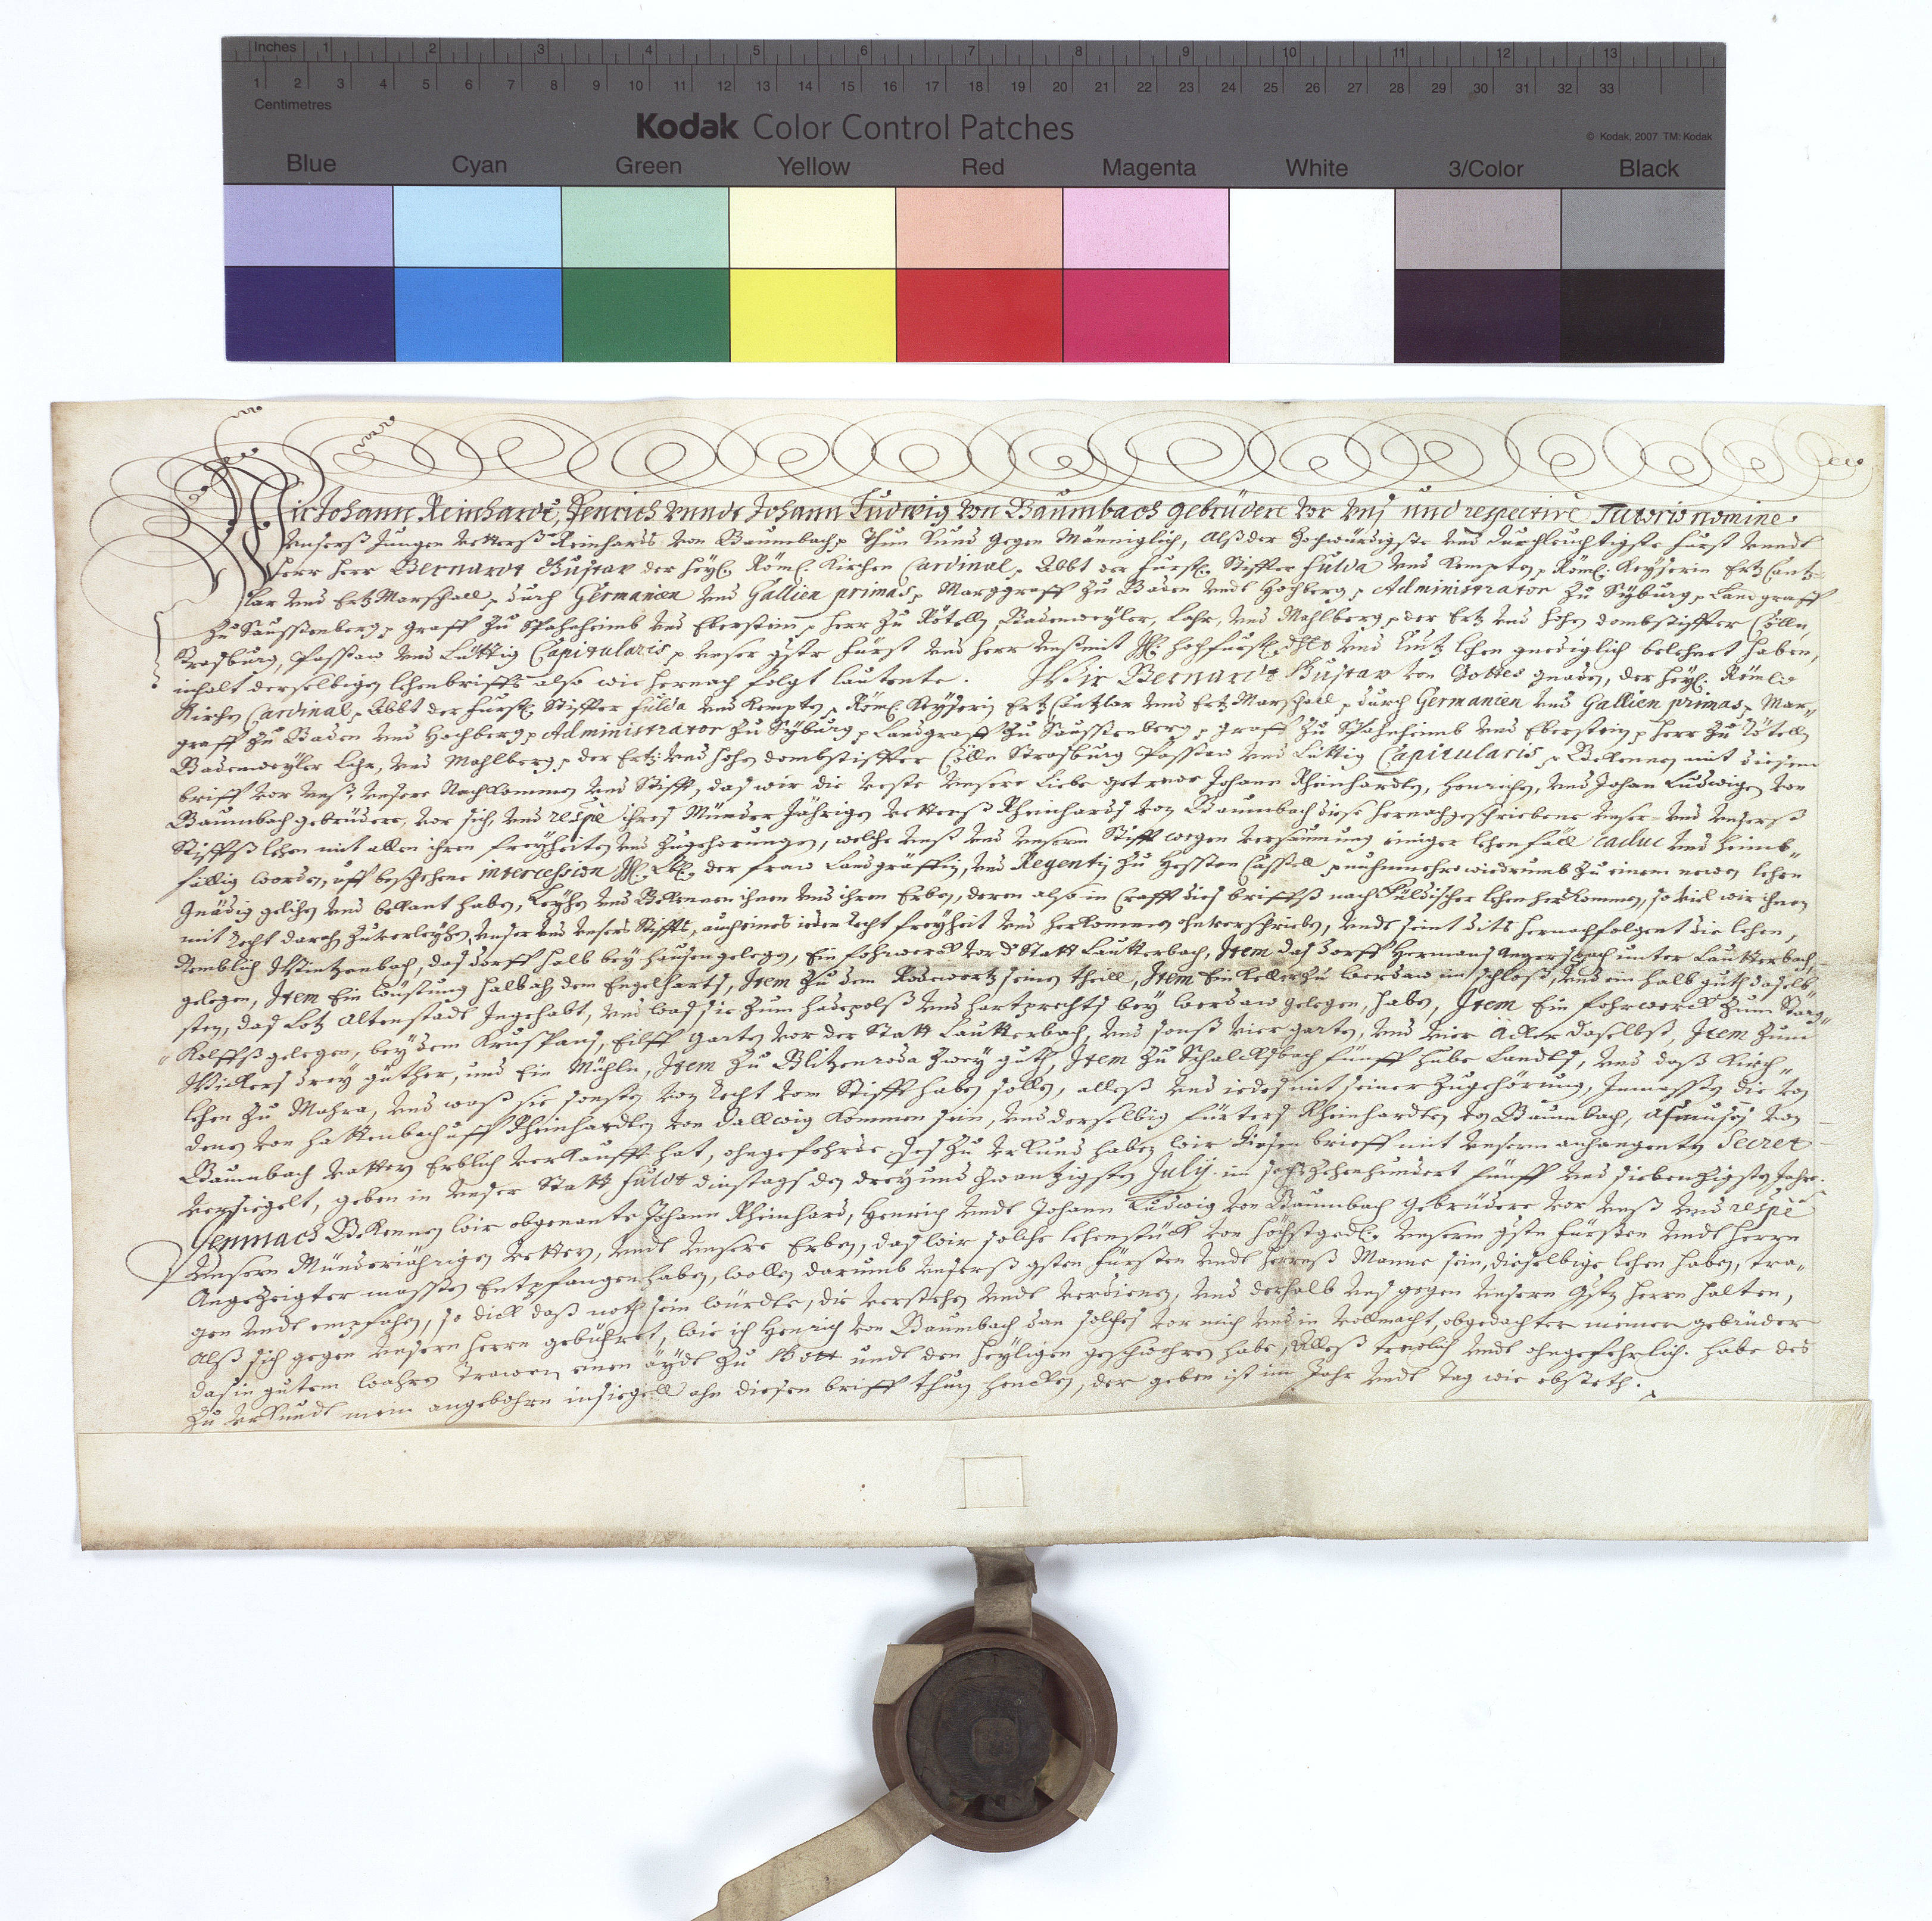 Inches 1 2 3 4 5 6 7 8 9 10 11 12 13
1 2 3 4 5 6 7 8 9 10 11 12 13 14 15 16 17 18 19 20 21 22 23 24 25 26 27 28 29 30 31 32 33
Centimetres
Kodak Color Control Patches
© Kodak, 2007 TM: Kodak
Blue Cyan Green Yellow Red Magenta White 3/Color Black
Wir Johann Reinhardt, Henrich unndt Johann Ludwig von Baumbach gebrüdere vor unß und respective Tutorio nomine
unserß Jungen vetterß Reinhardts von Baumbach, Thun kund gegen Männiglich, Alß der Hochwürdigste und durchleuchtigste Fürst unndt
Herr Herr Bernardt Gustav der Heyl: Röml: Kirchen Cardinal, Abbt der Fürstl: Stiffter Fulda und Kempten, Röml: Keyserin Ertz Cantz-
lar und Ertz Marschall, durch Germanien und Gallien primas, Marggraff zu Baden undt Hochberg, Administrator zu Syburg, Landgraff
zu Saußenberg, Graff zu Spahnheimb und Eberstein, Herr zu Rötelln Badenweyler, Lahr, und Mahlberg, der Ertz und hohen dombstiffter Cölln,
Strasburg, Passaw und Lüttig Capitularis, unser gstr Fürst und Herr unß mit hochfürstl: und lehen gnediglich belehnet haben,
inhalt derselbigen lehenbriffs also wie hernach folgt lautente. Wir Bernardt Gustav von Gottes gnaden, der Heyl: Römli
Kirchen Cardinal, Abbt der Fürstl: Stiffter Fulda und Kempten, Röml: Keyserin Ertz Cantzlar und Ertz Marschall, durch Germanien und Gallien primas, Mar-
graff zu Baden und Hochberg, Administrator zu Syburg, Landgraff zu Saußenberg, Graff zu Spahnheimb und Eberstein, Herr zu Rötelln
Badenweyler Lahr, und Mahlberg, der Ertz und hohen dombstiffter Cölln Strasburg Passaw und Lüttig Capitularis, Bekennen mit diesem
briff vor unß, unsere Nachkommen und Stifft, das wir die veste unsere Liebe getrewe Johann Rheinhardten, Henrichen, und Johan Ludwigen von
Baumbach gebrüdere, vor sich, und respe ihres Münder Jährigen vetterß Rheinhards von Baumbach diese hernachgeschriebene unser und unserß
Stiffts lehen mit allen ihren freyheiten und Zugehörungen, welche unß und unserm Stifft wegen versäumung einiger lehenfäll caduc und heimb-
fällig worden, uff beschehene intercession der Fraw Landgräffin, und Regentin zu Hessen Cassell, nuhnmehr wiedrumb zu einem newen lehen
Gnädig geliehen und bekant haben, Leyhen und Bekennen ihnen und ihren Erben, deren also in Crafft dies briffs nach Fuldischer Lehen herkommen, so viel wir ihnen
mit recht daran zu verleyhen, unser und unsers Stiffts, auch eines ieden recht freyheit und herkommen ohnverschrieben, undt seint dits hernachfolgent die lehen,
Nemblich Wintzenbach, das dorff halb bey hausen gelegen, Ein fohrwerck vor d Statt Lautterbach, Item das dorff Hermans Angersbach unter Lautterbach,
gelegen, Item Ein wüstung halb ahn dem Engelharts, Item zu dem Rodewertz seinen theill, Item Ein Keller zu werdaw im schloß, und ein halb guth daselb-
sten, das Lotz Altenstadt Ingehabt, und was sie zum und hartprechts bey werdaw gelegen, haben, Item Ein fohrwerck zum
Kolffs gelegen, bey dem Kruspans, Eilff garten vor der Statt Lautterbach, und sonst vier garten, und vier Äcker daselbst, Item zum
Wickers drey güther, und Ein Mühln, Item zu Blitzenroda zwey guth, Item zu Schalcksbach fünff hube Landes, und daß Kirch-
lehen zu Mahra, und waß sie sonsten von recht vom Stifft haben sollen, alleß und iedes mit seiner Zugehörung, Inmassen die von
denen von Hattenbach uff Rheinhardten von Dallwig kommen sein, und derselbig fürters Rheinhardten von Baumbach, Asmußen von
Baumbach vattern Erblich verkaufft hat, ohngefehrde, Des zu urkund haben wir diesen brieff mit unserm anhangenten Secret
versiegelt, geben in unser Statt Fuldt dinstags den dreyundzwantzigsten Julij im sechszehenhundert fünff und siebenzigsten Jahre.
Demnach Bekennen wir obgenante Johann Rheinhard, Henrich undt Johann Ludwig von Baumbach gebrüdere vor unß und respe
unsern Münderiährigen vettern, undt unsere Erben, das wir solche lehenstück von höchstgedl: unserm gsten Fürsten undt Herrn
Angezeigter massen Entpfangen haben, wollen darumb unserß gsten Fürsten undt Herrenß Manne sein, dieselbige lehen haben, tra-
gen undt empfahen, so dick daß noth sein würdte, die verstehen undt verdienen, und derhalb unß gegen unsern gstn Herrn halten,
Alß sich gegen unsern Herrn gebühret, wie ich Henrich von Baumbach dan solches vor mich und in vollmacht, obgedachter meiner gebrüder
das in gutem wahren trawen einen äydt zu Gott undt den Heyligen geschwohren habe, Alleß trewlich undt ohngefehrlich. Habe des
zu urkundt mein angebohrn insiegell ahn diesen briff thun hencken, der geben ist im Jahr undt Tag wie obsteth.